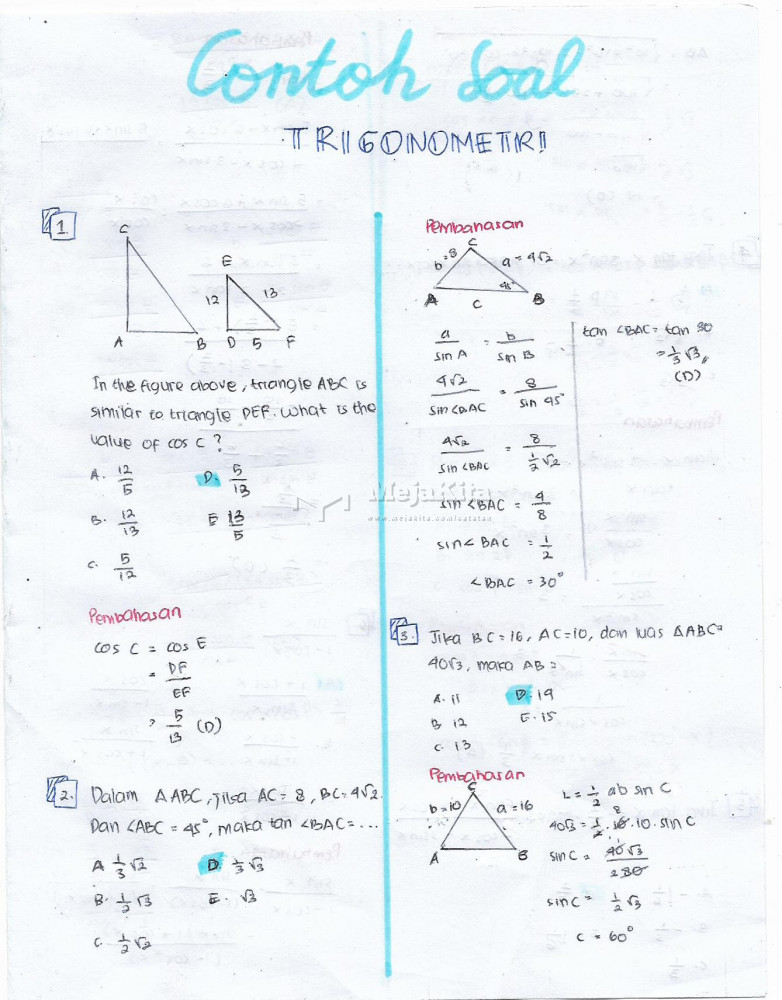 Contoh Soal
TRIGONOMETRI
1.
C
E
12
13
A
B
D
5
F
In the figure above, triangle ABC is
similar to triangle DEF. What is the
value of cos C ?
A. 12/5
D. 5/13
B. 12/13
E 13/5
C. 5/12
Pembahasan
cos C = cos E
= DF/EF
= 5/13 (D)
2.
Dalam △ABC, jika AC= 8, BC= 4√2.
Dan ∠ABC = 45°, maka tan ∠BAC=...
A 1/3 √2
D. 1/3 √3
B. 1/2 √3
E. √3
C. 1/2 √2
Pembahasan
C
b=8
a=4√2
45°
A
C
B
a/sin A = b/sin B
4√2/sin∠BAC = 8/sin 45°
4√2/sin∠BAC = 8/1/2 √2
sin∠BAC = 4/8
sin∠BAC = 1/2
∠BAC = 30°
tan ∠BAC= tan 30
= 1/3 √3
(D)
MejaKita
www.mejakita.com/catatan
3.
Jika BC=16, AC=10, dan luas △ABC=
40√3, maka AB=
A. 11
D. 14
B 12
E. 15
C. 13
Pembahasan
C
b=10
a=16
A
B
L= 1/2 ab sin C
8
40√3= 1/2 . 16 . 10 . sin C
sin C = 40√3/280
sin C= 1/2 √3
C = 60°